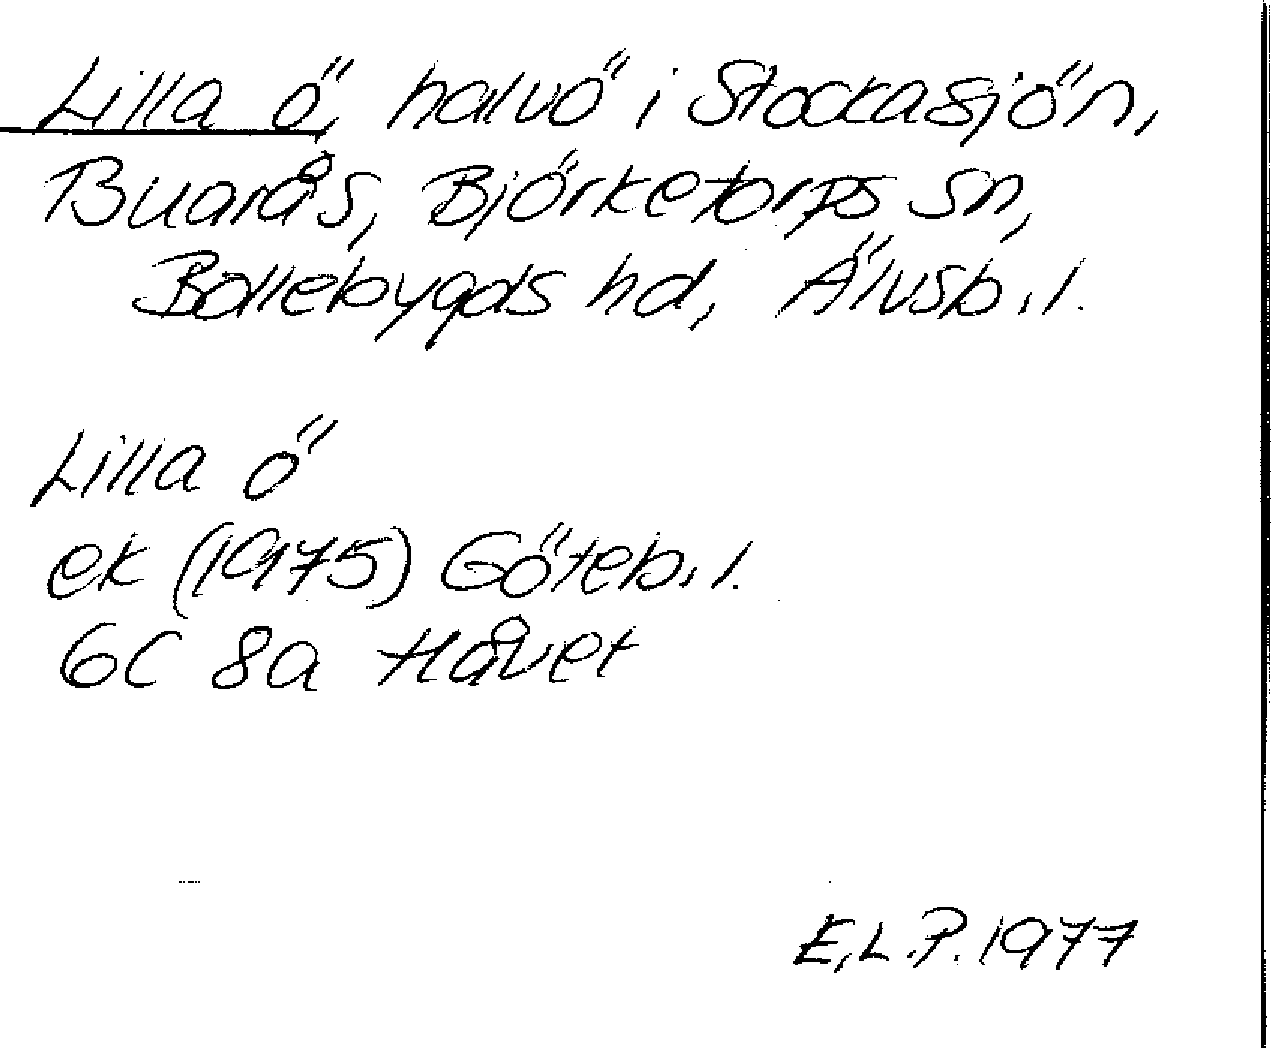 Lilla ö, halvö i Stockasjön,
Buarås, Björketorps sn,
Bollebygds hd, Älvsb.l.
Lilla ö
ek (1975) Göteb.l.
6C 8a Håvet
E.L.P. 1977